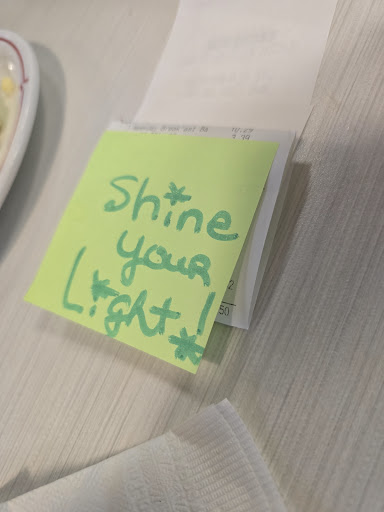 Shine
your
Light!